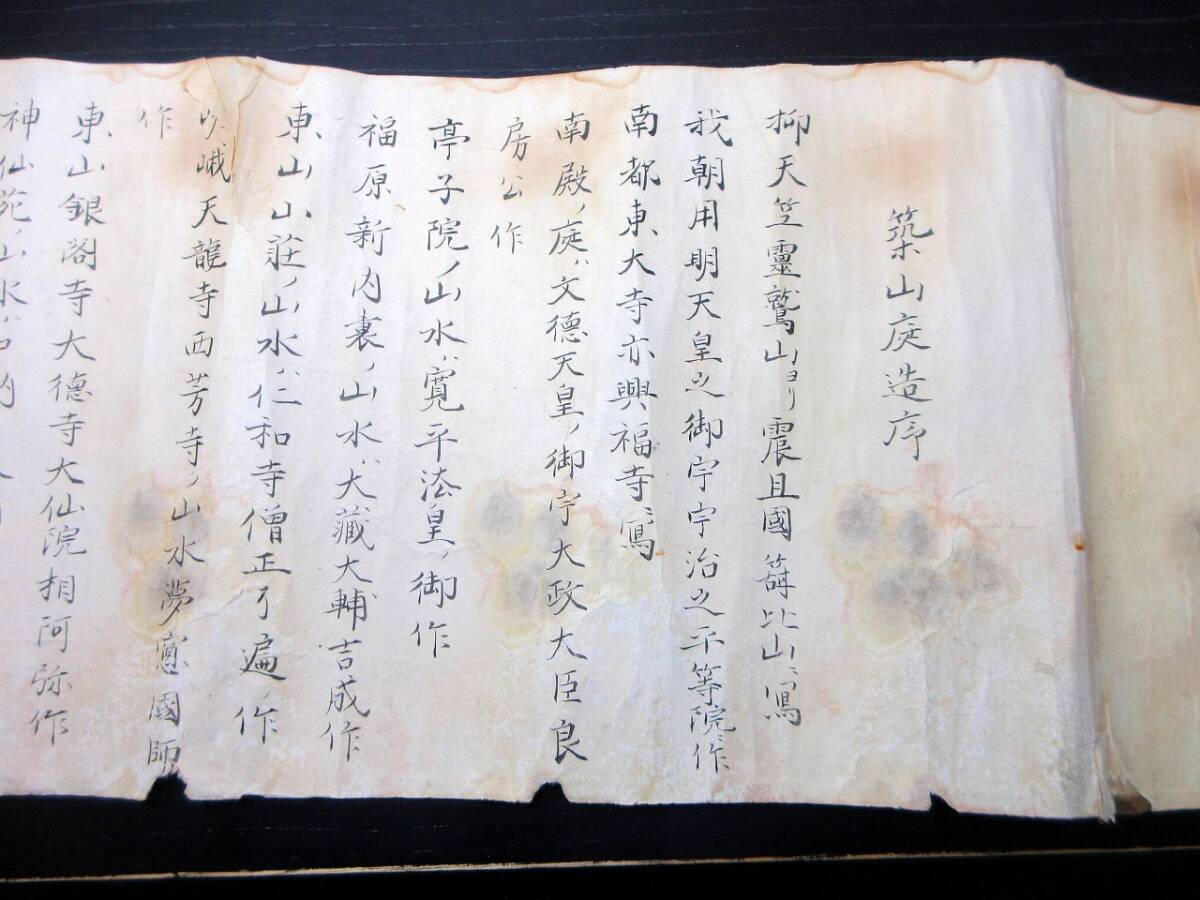 築山庭造序
抑天竺靈鷲山ヨリ震旦國篩比山ニ寫
我朝用明天皇之御宇宇治之平等院ニ作
南都東大寺亦興福寺ニ寫
南殿ノ庭ハ文德天皇ノ御宇大政大臣良
房公作
亭子院ノ山水ハ寛平法皇ノ御作
福原新内裏ノ山水ハ大藏大輔吉成作
東山山荘ノ山水ハ仁和寺僧正了遍ノ作
嵯峨天龍寺西芳寺ノ山水夢窓國師
作
東山銀閣寺大德寺大仙院相阿弥作
神仙苑ノ山水ハ